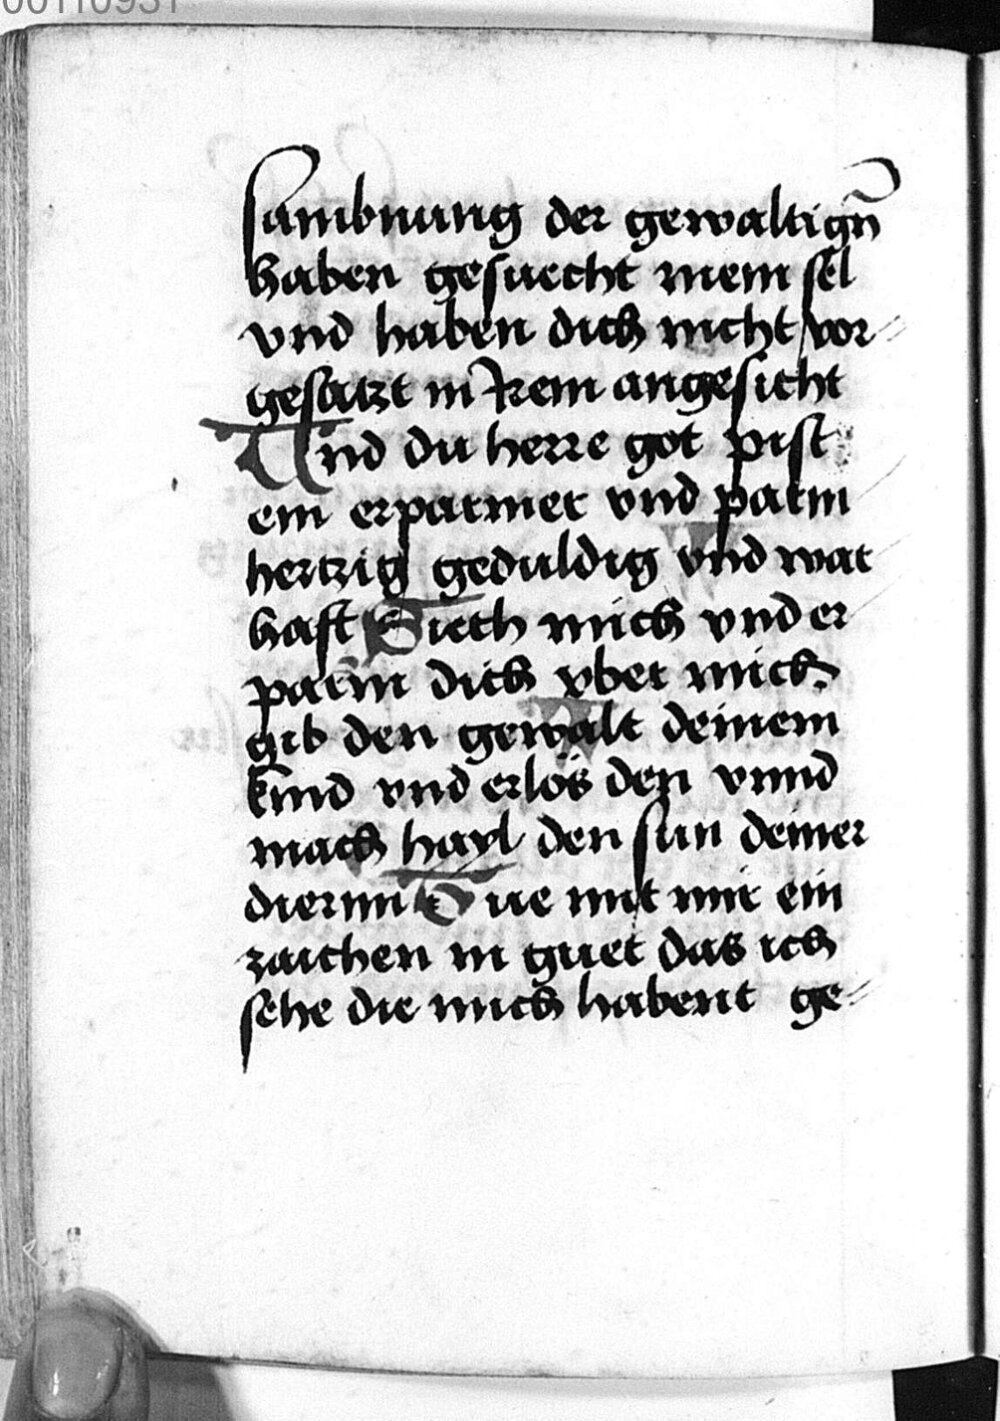 00110931
sambnung der gewaltign̄
haben gesuecht mein sel
vnd haben dich nicht vor⸗
gesatzt in Irem angesicht
Und du herre got pist
ein erparmer vnd parm
hertzig geduldig vnd war
haft Siech mich vnd er
parm dich vber mich.
gib den gewalt deinem
kind vnd erlös den vnnd
mach hayl den sun deiner
diernn Tue mit mir ein
zaichen in guet das ich
sehe die mich habent ge⸗